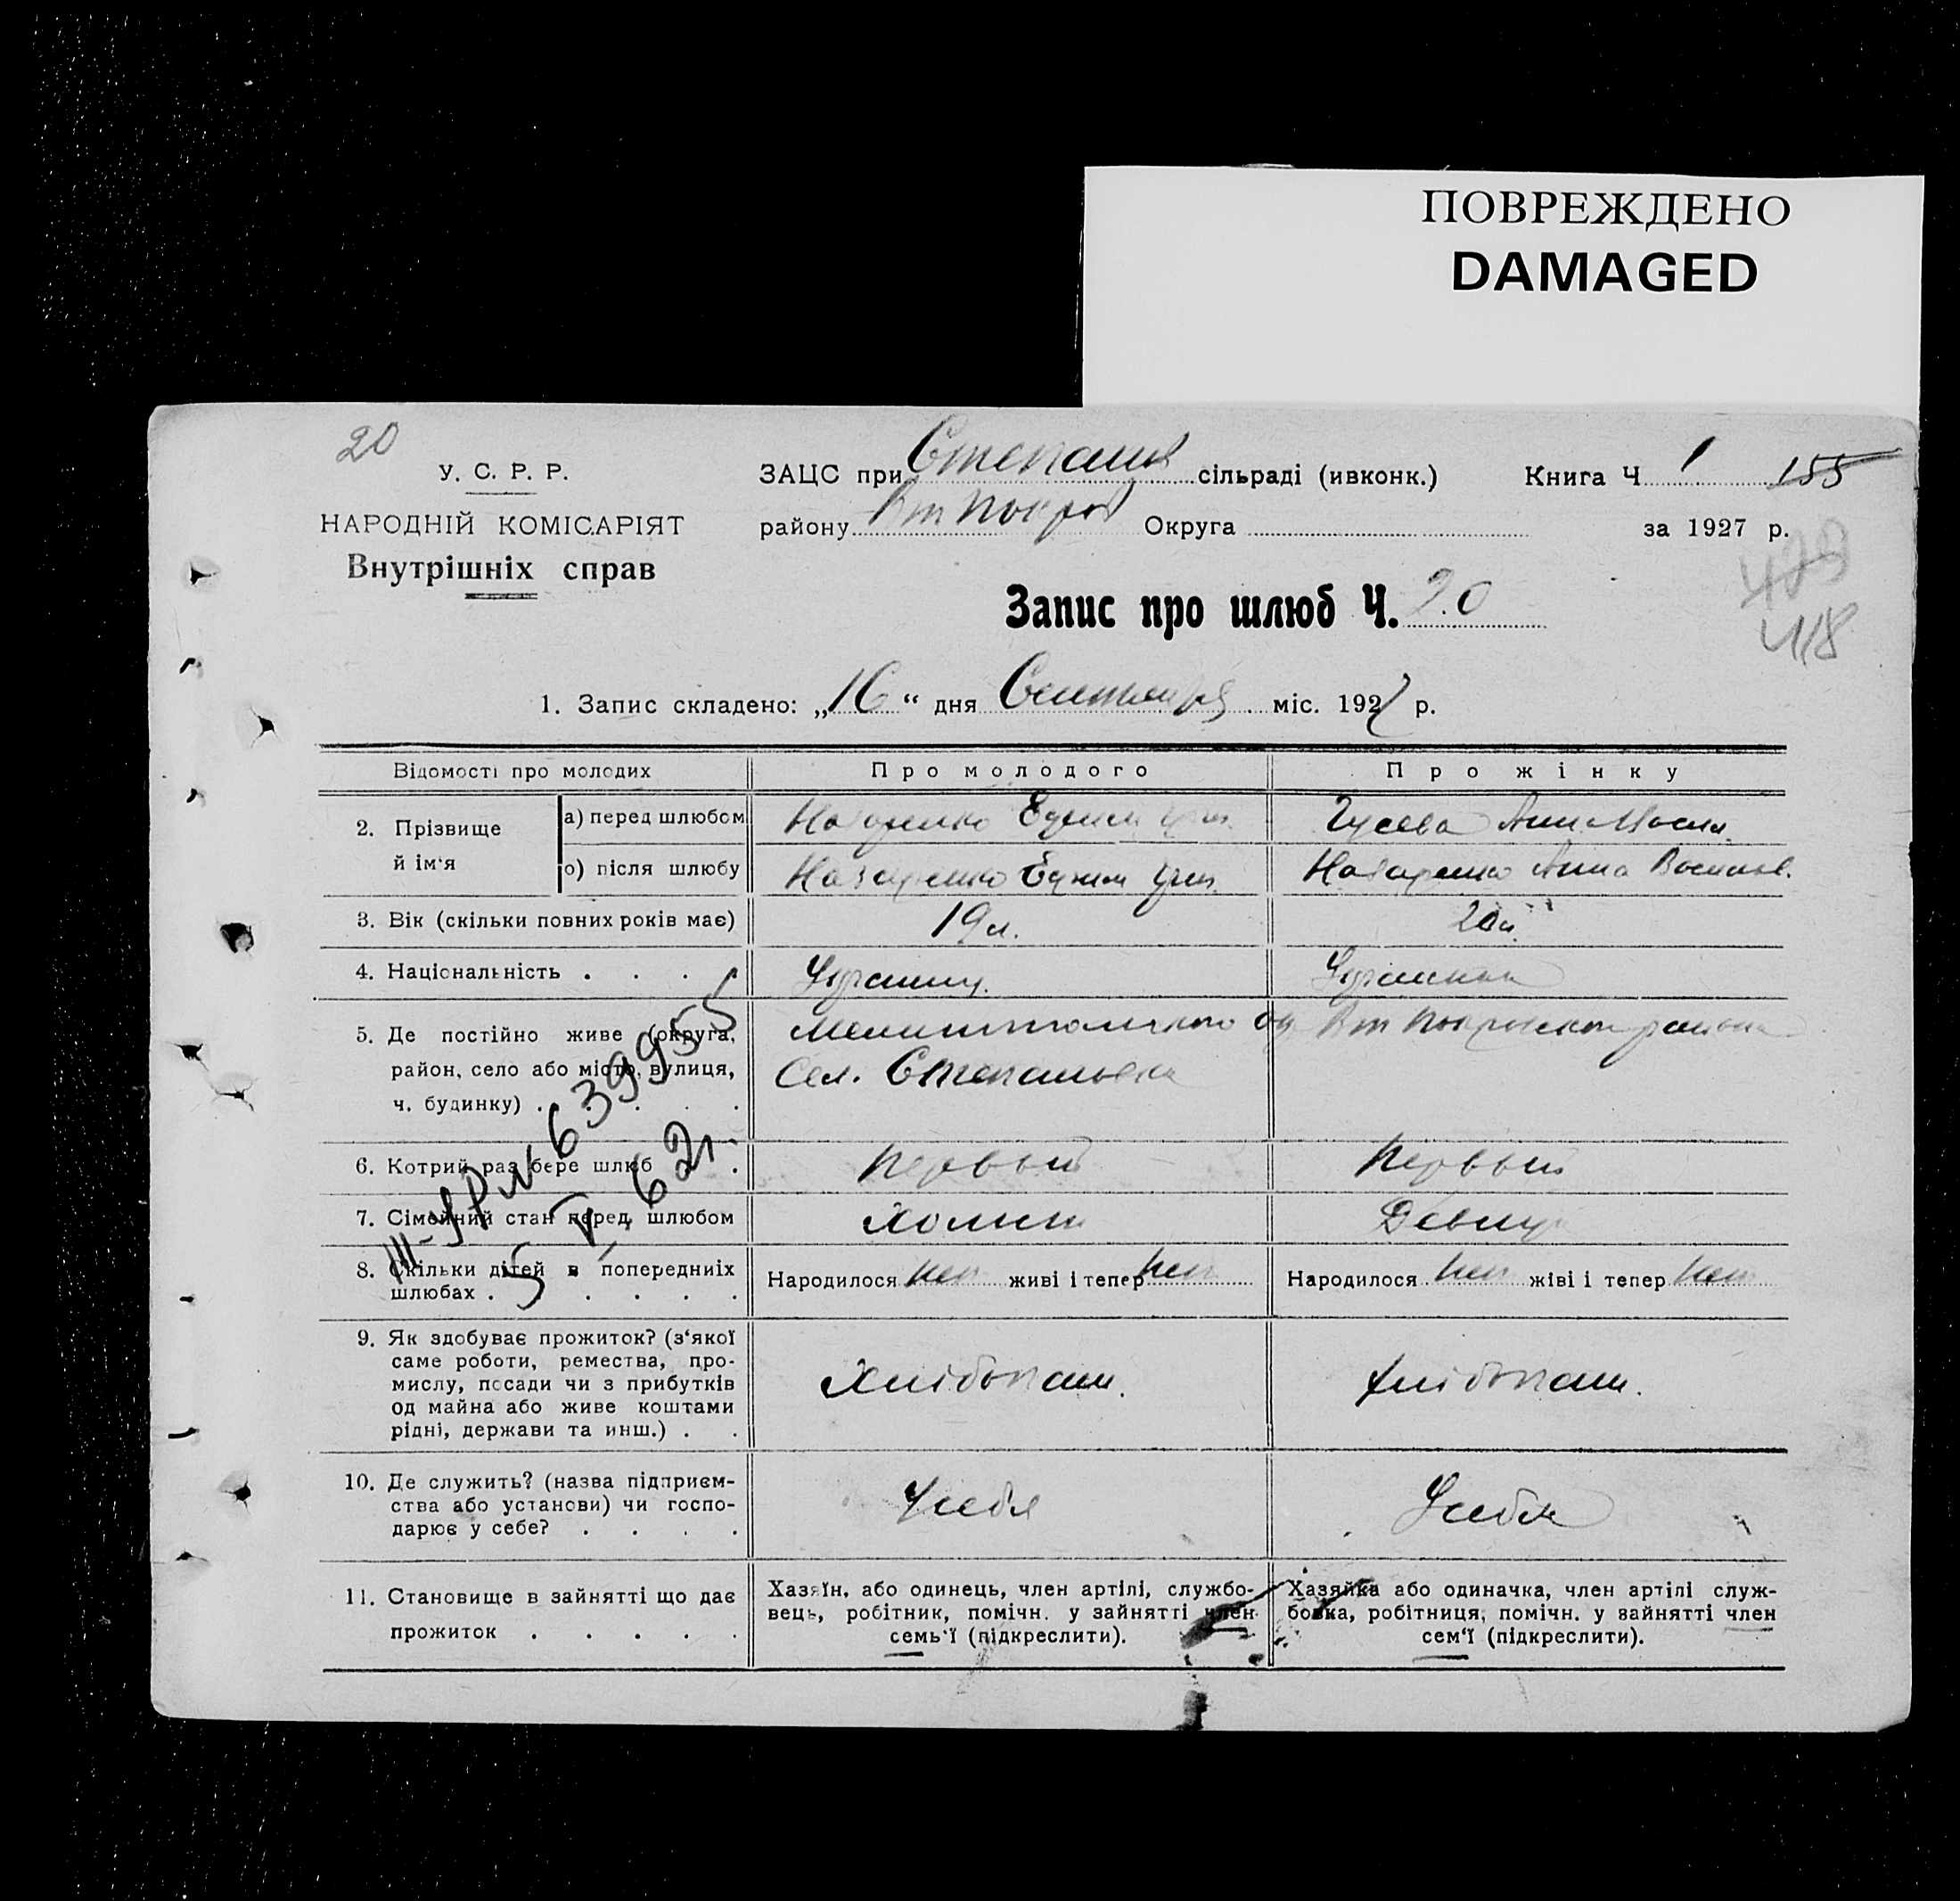 ПОВРЕЖДЕНО
DAMAGED
20
У. С. Р. Р.
НАРОДНІЙ КОМІСАРІЯТ
Внутрішніх справ
ЗАЦС при Степанов сільраді (ивконк.) Книга Ч 1 155
району Вт Покров Округа за 1927 р.
418
Запис про шлюб Ч. 20
1. Запис складено: „16“ дня Сентября міс. 1927 р.
Відомості про молодих Про молодого Про жінку
2. Прізвище й ім'я
а) перед шлюбом Назаренко Ефим Гусева Анна Васил.
о) після шлюбу Назаренко Ефим Назаренко Анна Васильев.
3. Вік (скільки повних років має) 19 л. 20 л.
4. Національність . . . . Украинец. Украинка
5. Де постійно живе (округа, район, село або місто, вулиця, ч. будинку) . . . .
Мелитопольского ок Вт Покровского района
Сел. Степановка
6. Котрий раз бере шлюб . Первый Первый
7. Сімейний стан перед шлюбом Холост Девица
8. Скільки дітей в попередниіх шлюбах . . . . . .
Народилося нет живі і тепер нет Народилося нет жіві і тепер нет
III-УР № 639955
5 V 62 г.
9. Як здобуває прожиток? (з'якої
саме роботи, ремества, про-
мислу, посади чи з прибутків
од майна або живе коштами
рідні, держави та инш.) . .
Хлібопаш. Хлібопаш.
10. Де служить? (назва підприєм-
ства або установи) чи госпо-
дарює у себе? . . . .
У себя У себя
11. Становище в зайнятті що дає
прожиток . . . . .
Хазяїн, або одинець, член артілі, службо-
вець, робітник, помічн. у зайнятті член
семь'ї (підкреслити).
Хазяйка або одиначка, член артілі служ-
бовка, робітниця, помічн. у зайнятті член
сем'ї (підкреслити).